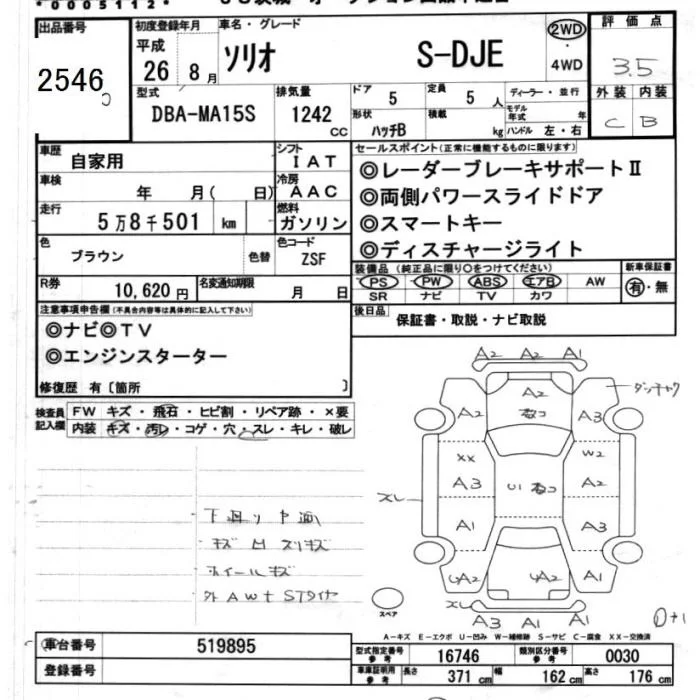 *0005112*
出品番号
2546
初度登録年月
平成
26年8月
車名・グレード
ソリオ S-DJE
2WD・4WD
評価点
3.5
外装 内装
C B
型式
DBA-MA15S
排気量
1242 CC
ドア
5
定員
5人
形状
ハッチB
積載
kg
ディーラー・並行
モデル年式 年
ハンドル 左・右
車歴
自家用
シフト
IAT
車検
年 月( 日)
冷房
AAC
走行
5万8千501 km
燃料
ガソリン
色
ブラウン
色替
色コード
ZSF
R券
10,620円
名変通知期限
月 日
セールスポイント(正常に機能するものに限ります)
◎レーダーブレーキサポートⅡ
◎両側パワースライドドア
◎スマートキー
◎ディスチャージライト
装備品(純正品に限り○をつけてください)
PS PW ABS エアB AW
SR ナビ TV カワ
新車保証書
有・無
後日品
保証書・取説・ナビ取説
注意事項申告欄(不具合内容等は具体的に記入して下さい)
◎ナビ◎TV
◎エンジンスターター
修復歴 有〔箇所 〕
検査員記入欄
FW キズ・飛石・ヒビ割・リペア跡・×要
内装 キズ・汚レ・コゲ・穴・スレ・キレ・破レ
A2 A2 A1
A2 A2 A3
XX W2
A3 U1 A2
スレ
A1 A3
A1
スペア
スレ
A3 A1 A1
下廻り
キズ 凹 スリキズ
ホイールキズ
A-キズ E-エクボ U-凹み W-補修跡 S-サビ C-腐食 XX-交換済
車台番号
519895
登録番号
型式指定番号 参考
16746
類別区分番号 参考
0030
車庫証明用 参考
長さ 371cm 幅 162cm 高さ 176cm